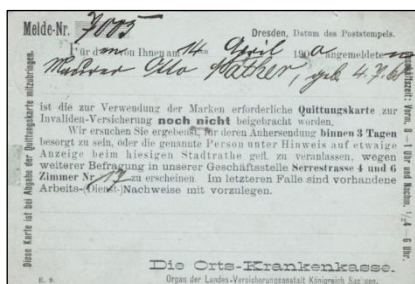 Melde-Nr. 7005
Dresden, Datum des Poststempels.
Für den von Ihnen am 14 April 190 angemeldeten
Maurer Otto Näther, geb 4.7.
ist die zur Verwendung der Marken erforderliche Quittungskarte zur
Invaliden-Versicherung noch nicht beigebracht worden.
Wir ersuchen Sie ergebenst, für deren Anhersendung binnen 3 Tagen
besorgt zu sein, oder die genannte Person unter Hinweis auf etwaige
Anzeige beim hiesigen Stadtrathe gefl. zu veranlassen, wegen
weiterer Befragung in unserer Geschäftsstelle Serrestrasse 4 und 6
Zimmer Nr. 17 zu erscheinen. Im letzteren Falle sind vorhandene
Arbeits-(Dienst-)Nachweise mit vorzulegen.
Die Orts-Krankenkasse.
Organ der Landes-Versicherungsanstalt Königreich Sachsen.
Diese Karte ist bei Abgabe der Quittungskarte mitzubringen.
Vorm. 8–1 Uhr und Nachm. 1/24–6 Uhr.